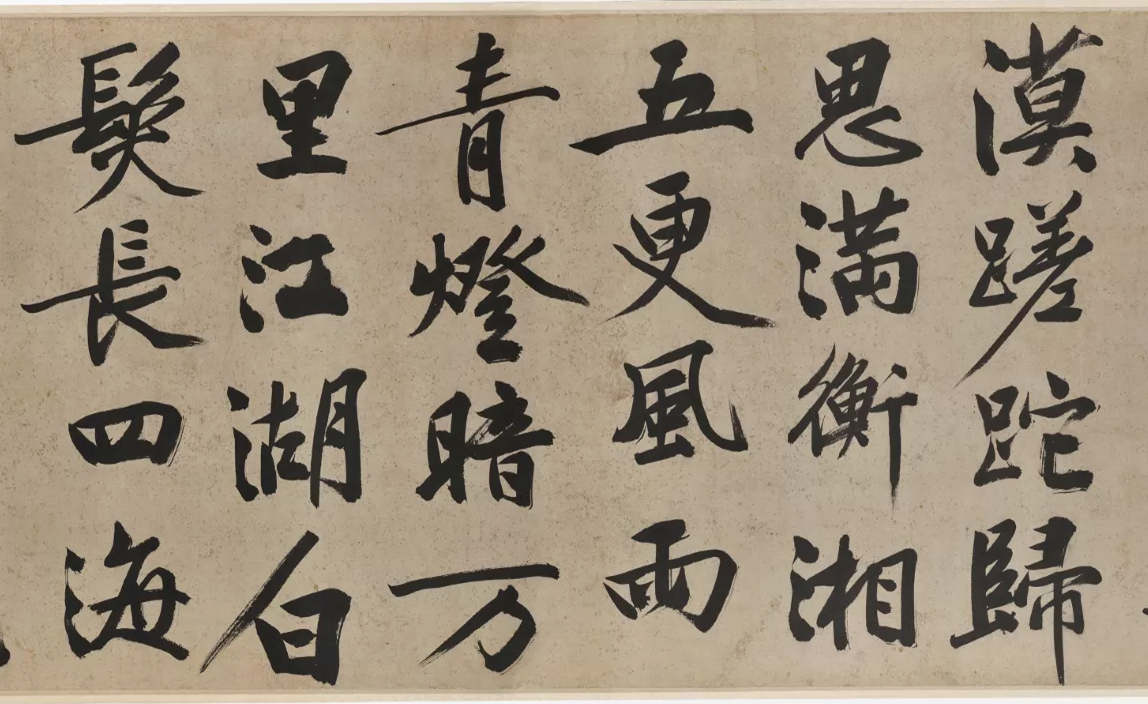 漠蹉跎歸
思滿衡湘
五更風雨
青燈暗万
里江湖白
髮長四海